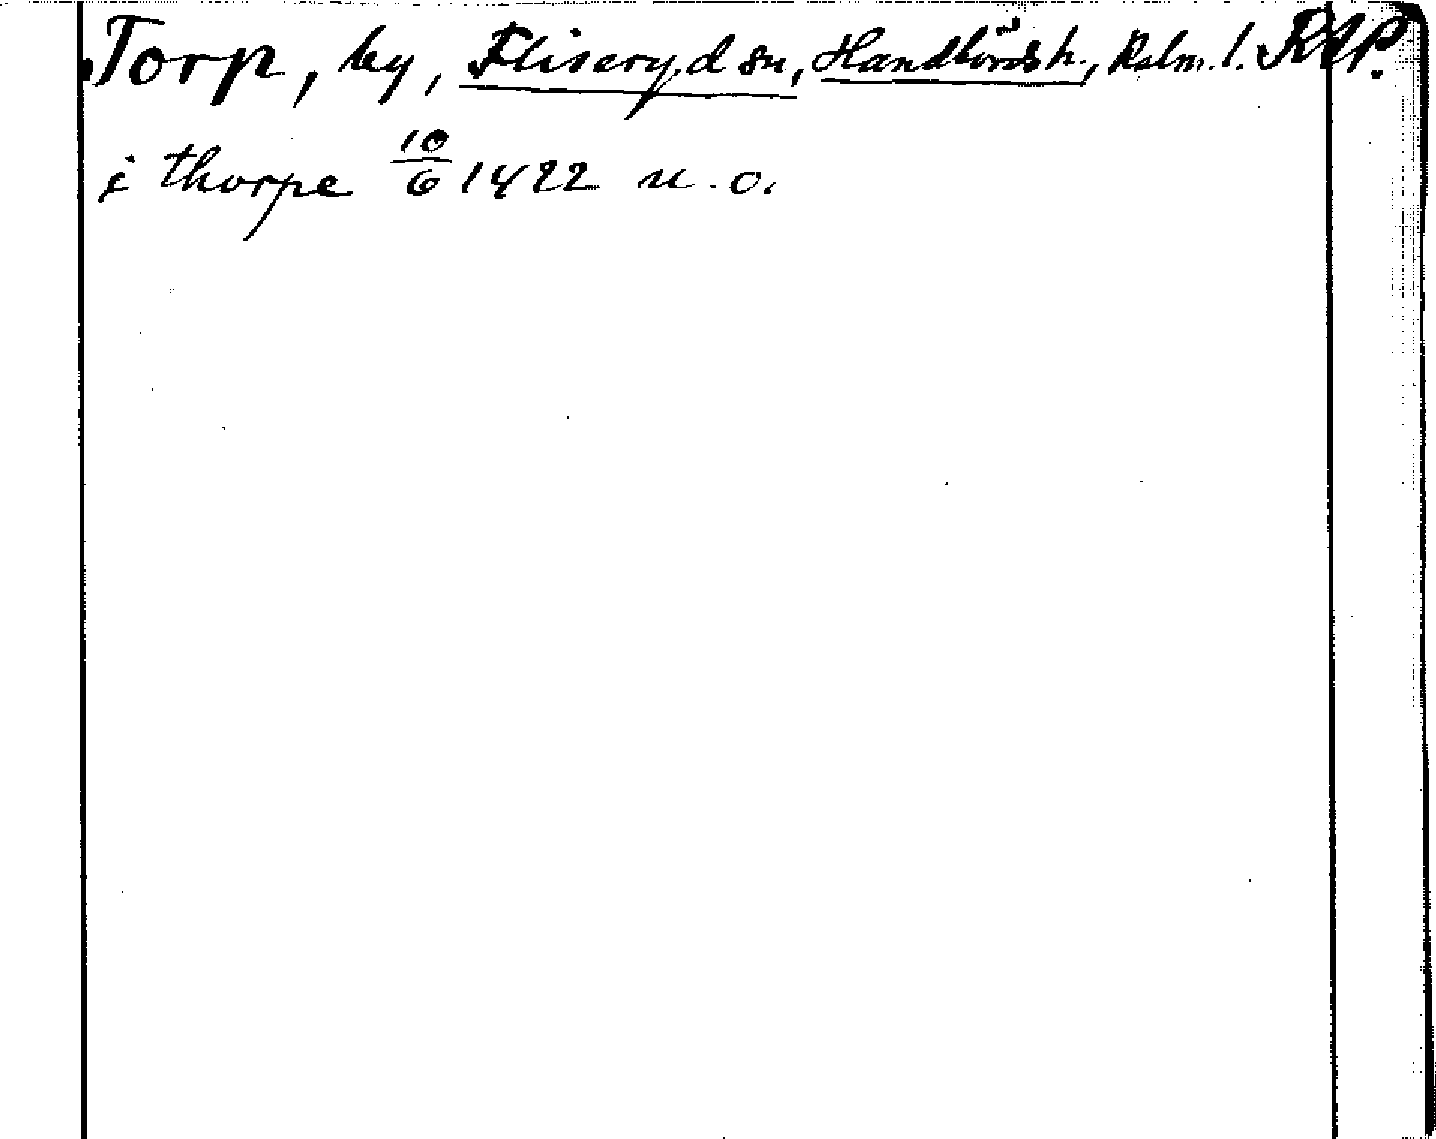 Torp, by, Fliseryd sn, Handbörds h., Kalm. l. RAP.
i thorpe 10/6 1422 u. o.